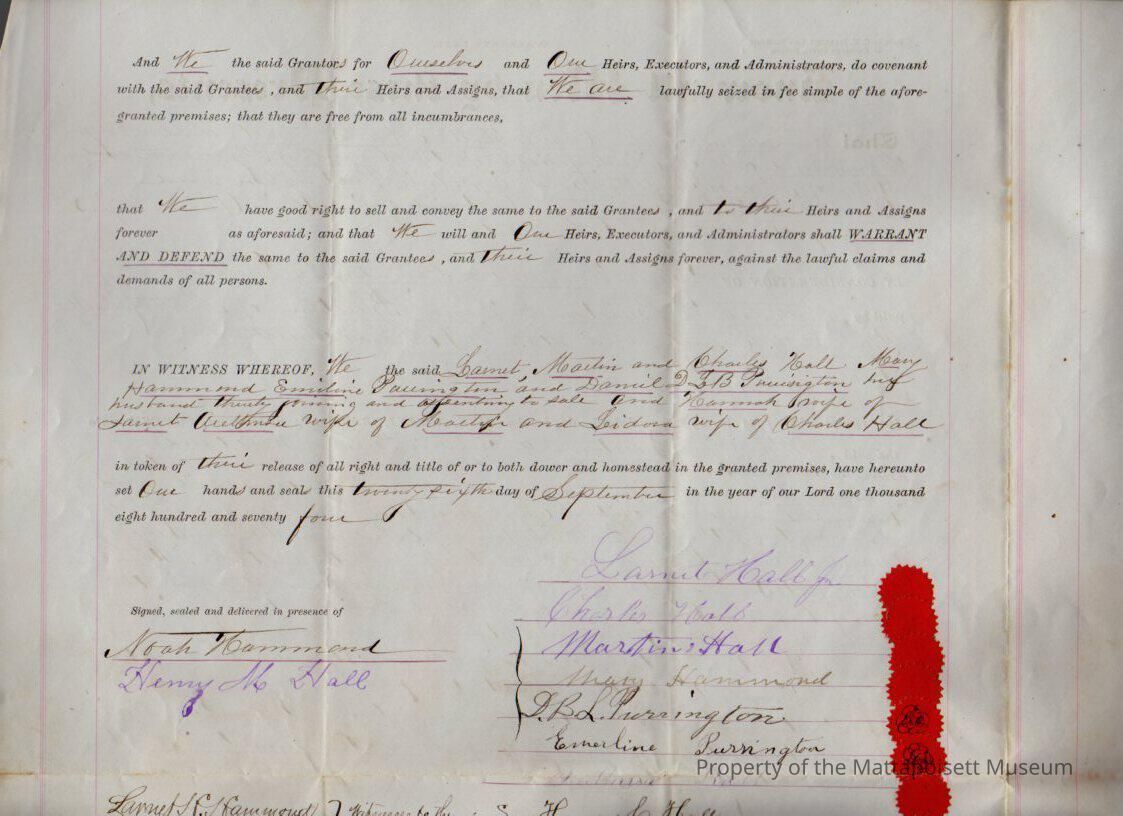 And We the said Grantors for Ourselves and Our Heirs, Executors, and Administrators, do covenant
with the said Grantees, and their Heirs and Assigns, that We are lawfully seized in fee simple of the afore-
granted premises; that they are free from all incumbrances,
that We have good right to sell and convey the same to the said Grantees, and to their Heirs and Assigns
forever as aforesaid; and that We will and Our Heirs, Executors, and Administrators shall WARRANT
AND DEFEND the same to the said Grantees, and their Heirs and Assigns forever, against the lawful claims and
demands of all persons.
IN WITNESS WHEREOF, We the said Larnet, Martin and Charles Hall Mary
Hammond Emiline Purrington, and Daniel
husband and assenting to sale and Hannah wife of
Larnet wife of Martin and wife of Charles Hall
in token of their release of all right and title of or to both dower and homestead in the granted premises, have hereunto
set Our hands and seals this twenty sixth day of September in the year of our Lord one thousand
eight hundred and seventy four
Larnet Hall Jr
Charles Hall
Signed, sealed and delivered in presence of
Noah Hammond
Martin Hall
Henry M Hall
Mary Hammond
D.B.L. Purrington
Emerline Purrington
Property of the Mattapoisett Museum
Larnet H. Hammond Witnesses to the